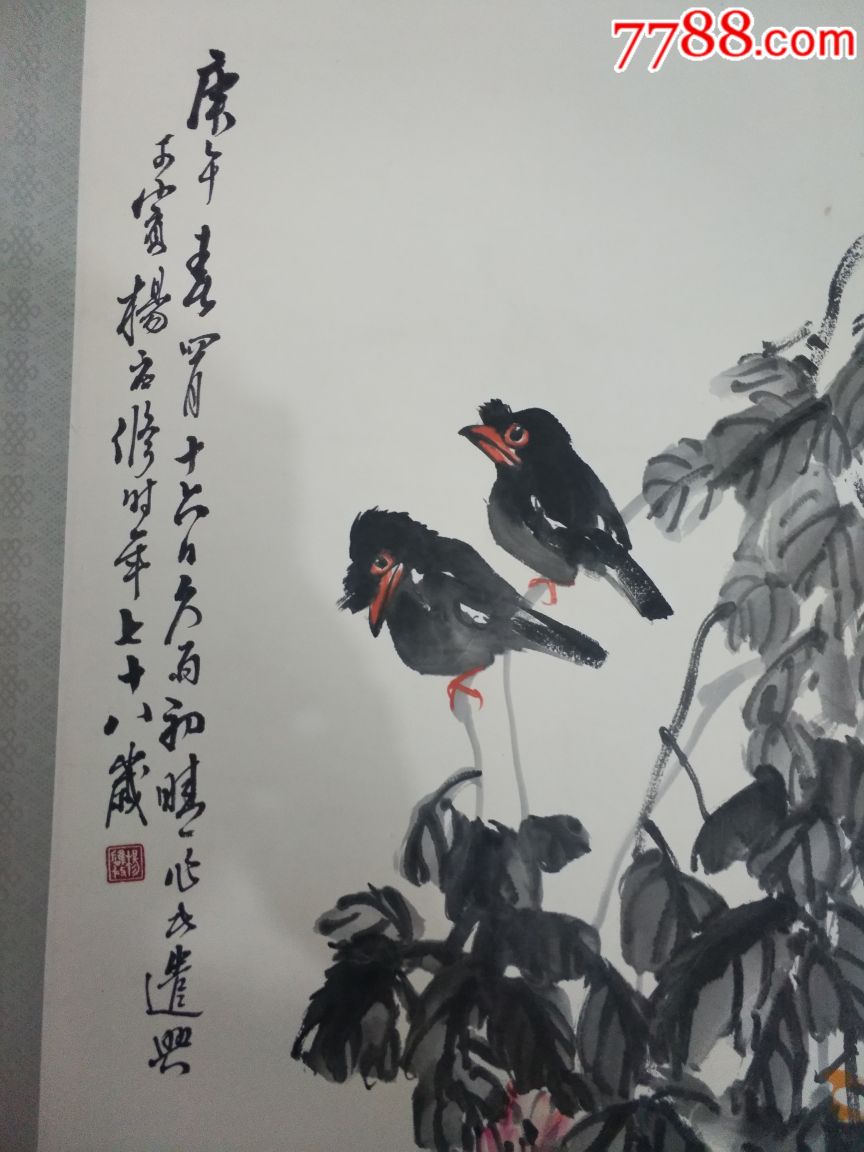 7788.com
庚午春四月十六日久雨初晴作此遣興
賓楊修时年七十八歲